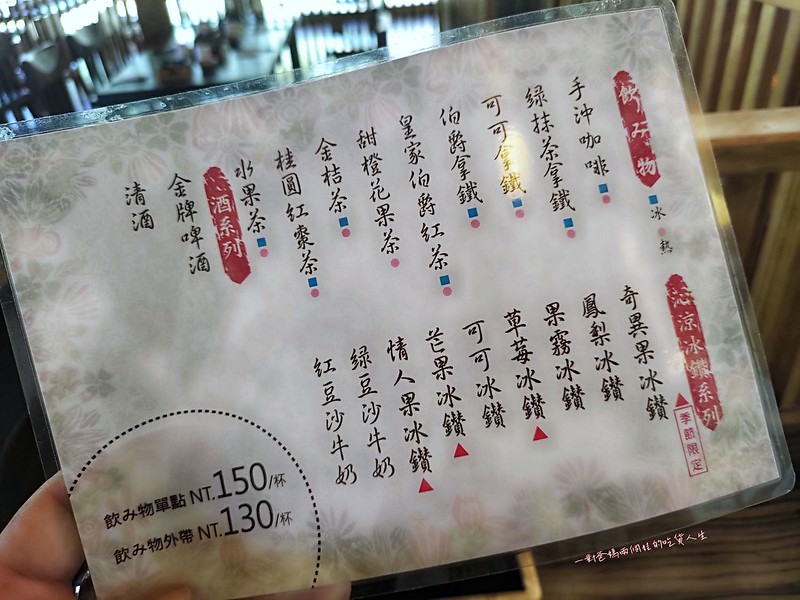 飲み物
冰 熱
手沖咖啡
綠抹茶拿鐵
可可拿鐵
伯爵拿鐵
皇家伯爵紅茶
甜橙花果茶
金桔茶
桂圓紅棗茶
水果茶
酒系列
金牌啤酒
清酒
沁涼冰鑽系列
季節限定
奇異果冰鑽
鳳梨冰鑽
果霧冰鑽
草莓冰鑽
可可冰鑽
芒果冰鑽
情人果冰鑽
綠豆沙牛奶
紅豆沙牛奶
飲み物單點 NT.150/杯
飲み物外帶 NT.130/杯
一對爸媽兩個娃的吃貨人生